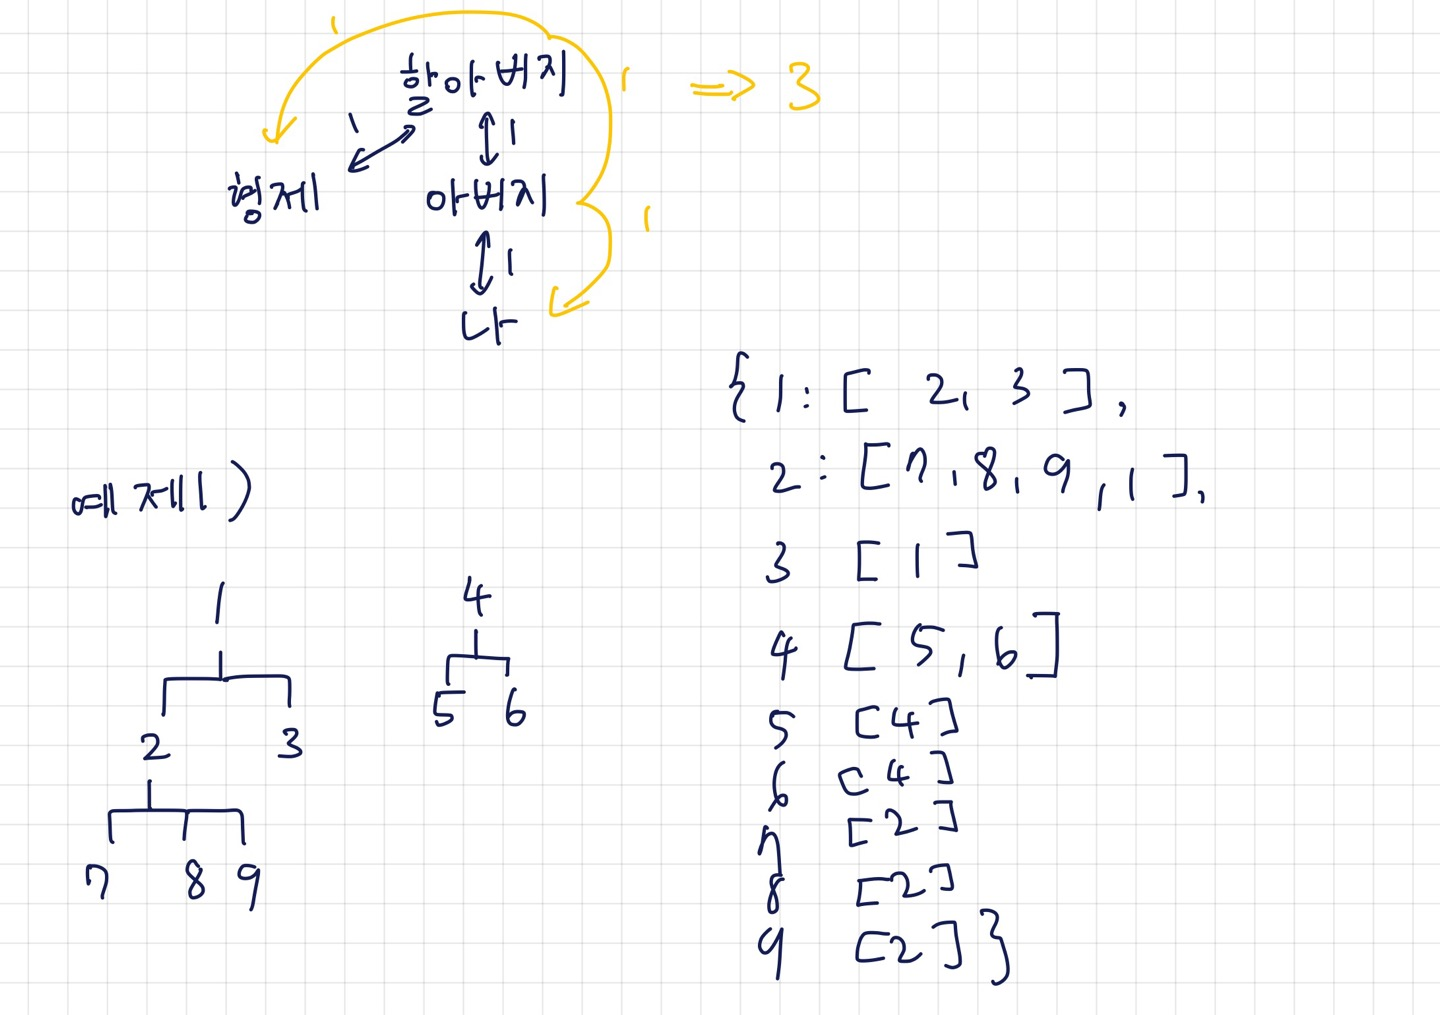 1
할아버지 1 ⇒ 3
1 1
형제 아버지 1
1
나
{ 1 : [ 2, 3 ],
2 : [ 7, 8, 9, 1 ],
예제1)
3 [ 1 ]
1 4
4 [ 5, 6 ]
5 6
5 [4]
2 3
6 [4]
7 [2]
7 8 9
8 [2]
9 [2] }